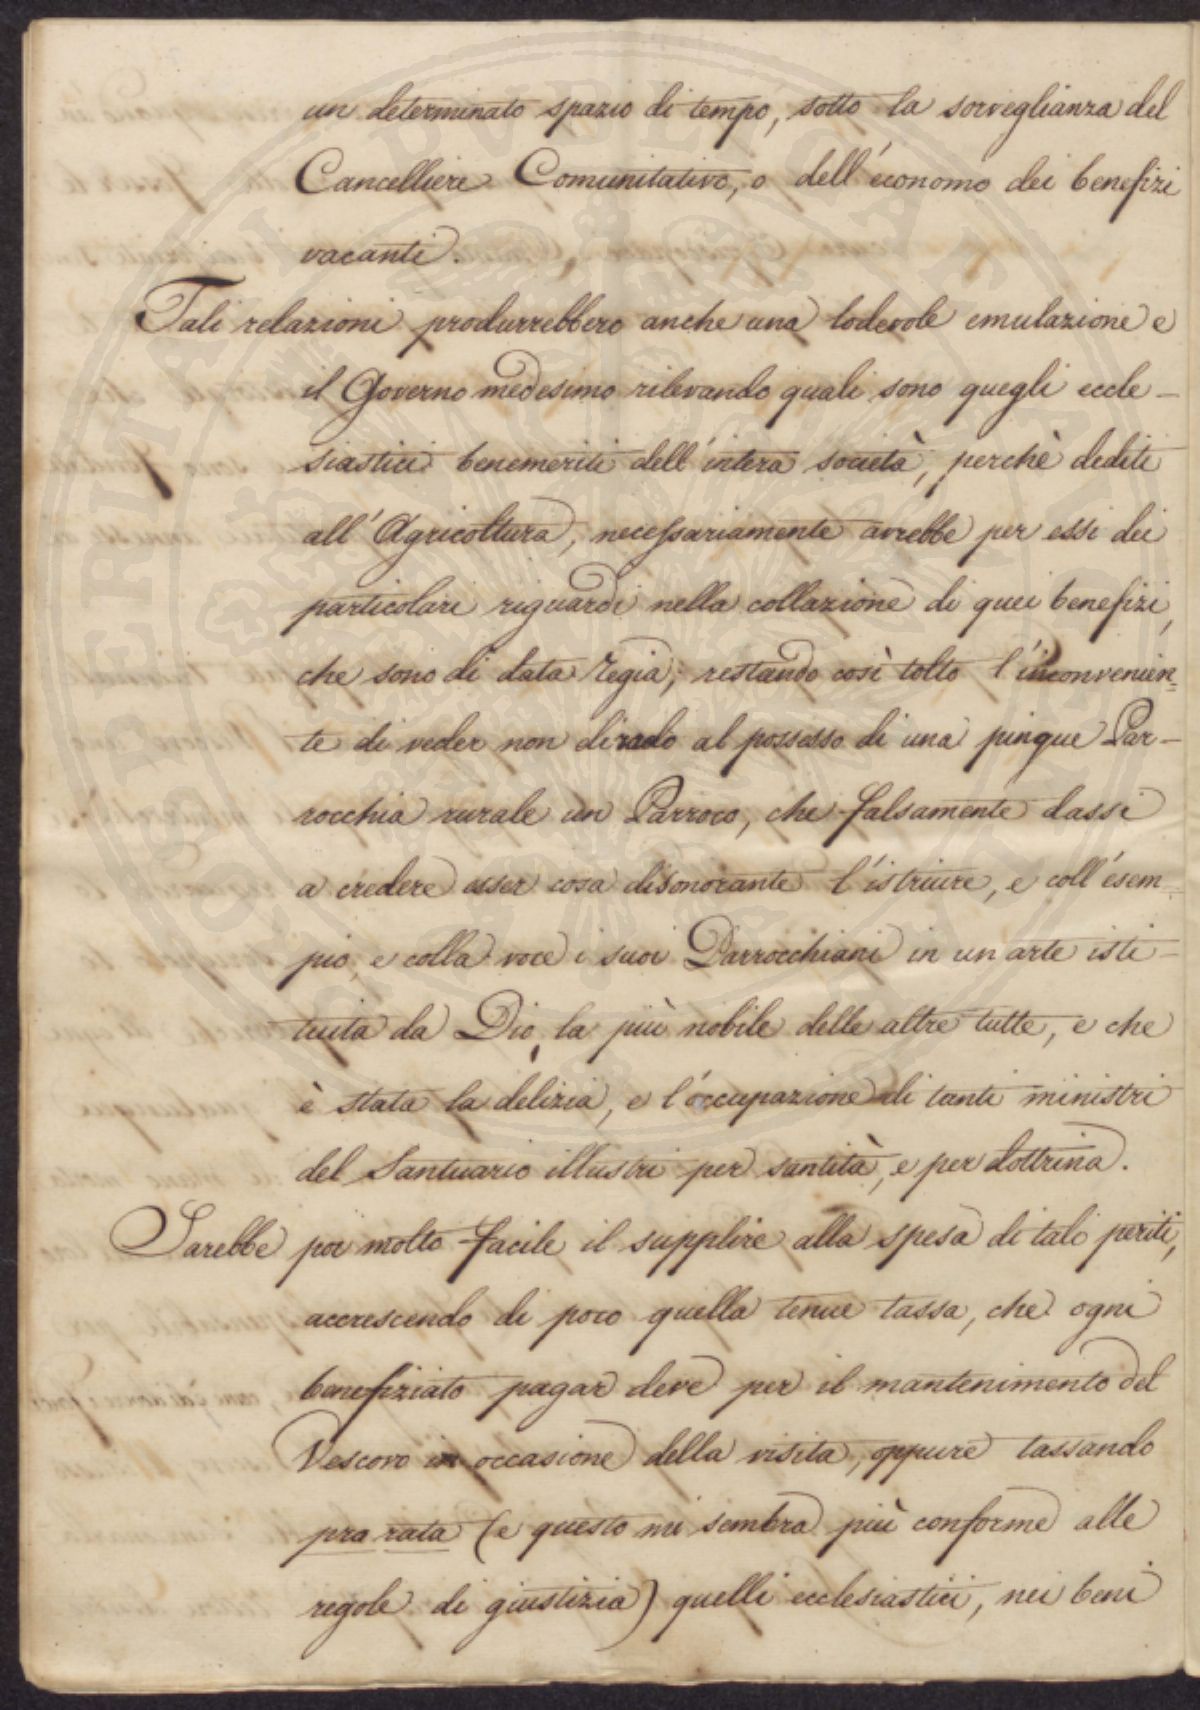 un determinato spazio di tempo, sotto la sorveglianza del
Cancelliere Comunitativo, o dell'économo dei benefizi
vacanti.
Tali relazioni produrrebbero anche una lodevole emulazione e
il Governo medesimo rilevando quali sono quegli eccle-
siastici benemeriti dell'intera società, perchè dediti
all'Agricoltura, necessariamente avrebbe per essi dei
particolari riguardi nella collazione di quei benefizi,
che sono di data Regia; restando così tolto l'inconvenien=
te di veder non di rado al possesso di una pingue Par-
rocchia rurale un Parroco, che falsamente dassi
a credere esser cosa disonorante l'istruire, e coll'esem=
pio, e colla voce i suoi Parrocchiani in un arte isti-
tuita da Dio, la più nobile delle altre tutte, e che
è stata la delizia, e l'occupazione di tanti ministri
del Santuario illustri per santità, e per dottrina.
Sarebbe poi molto facile il supplire alla spesa di tali periti,
accrescendo di poco quella tenue tassa, che ogni
benefiziato pagar deve per il mantenimento del
Vescovo in occasione della visita, oppure tassando
pro rata (e questo mi sembra più conforme alle
regole di giustizia) quelli ecclesiastici, nei beni